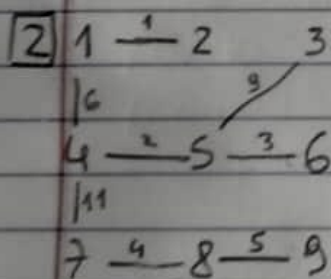 2 1 1 2 3
6 9
4 2 5 3 6
11
7 4 8 5 9